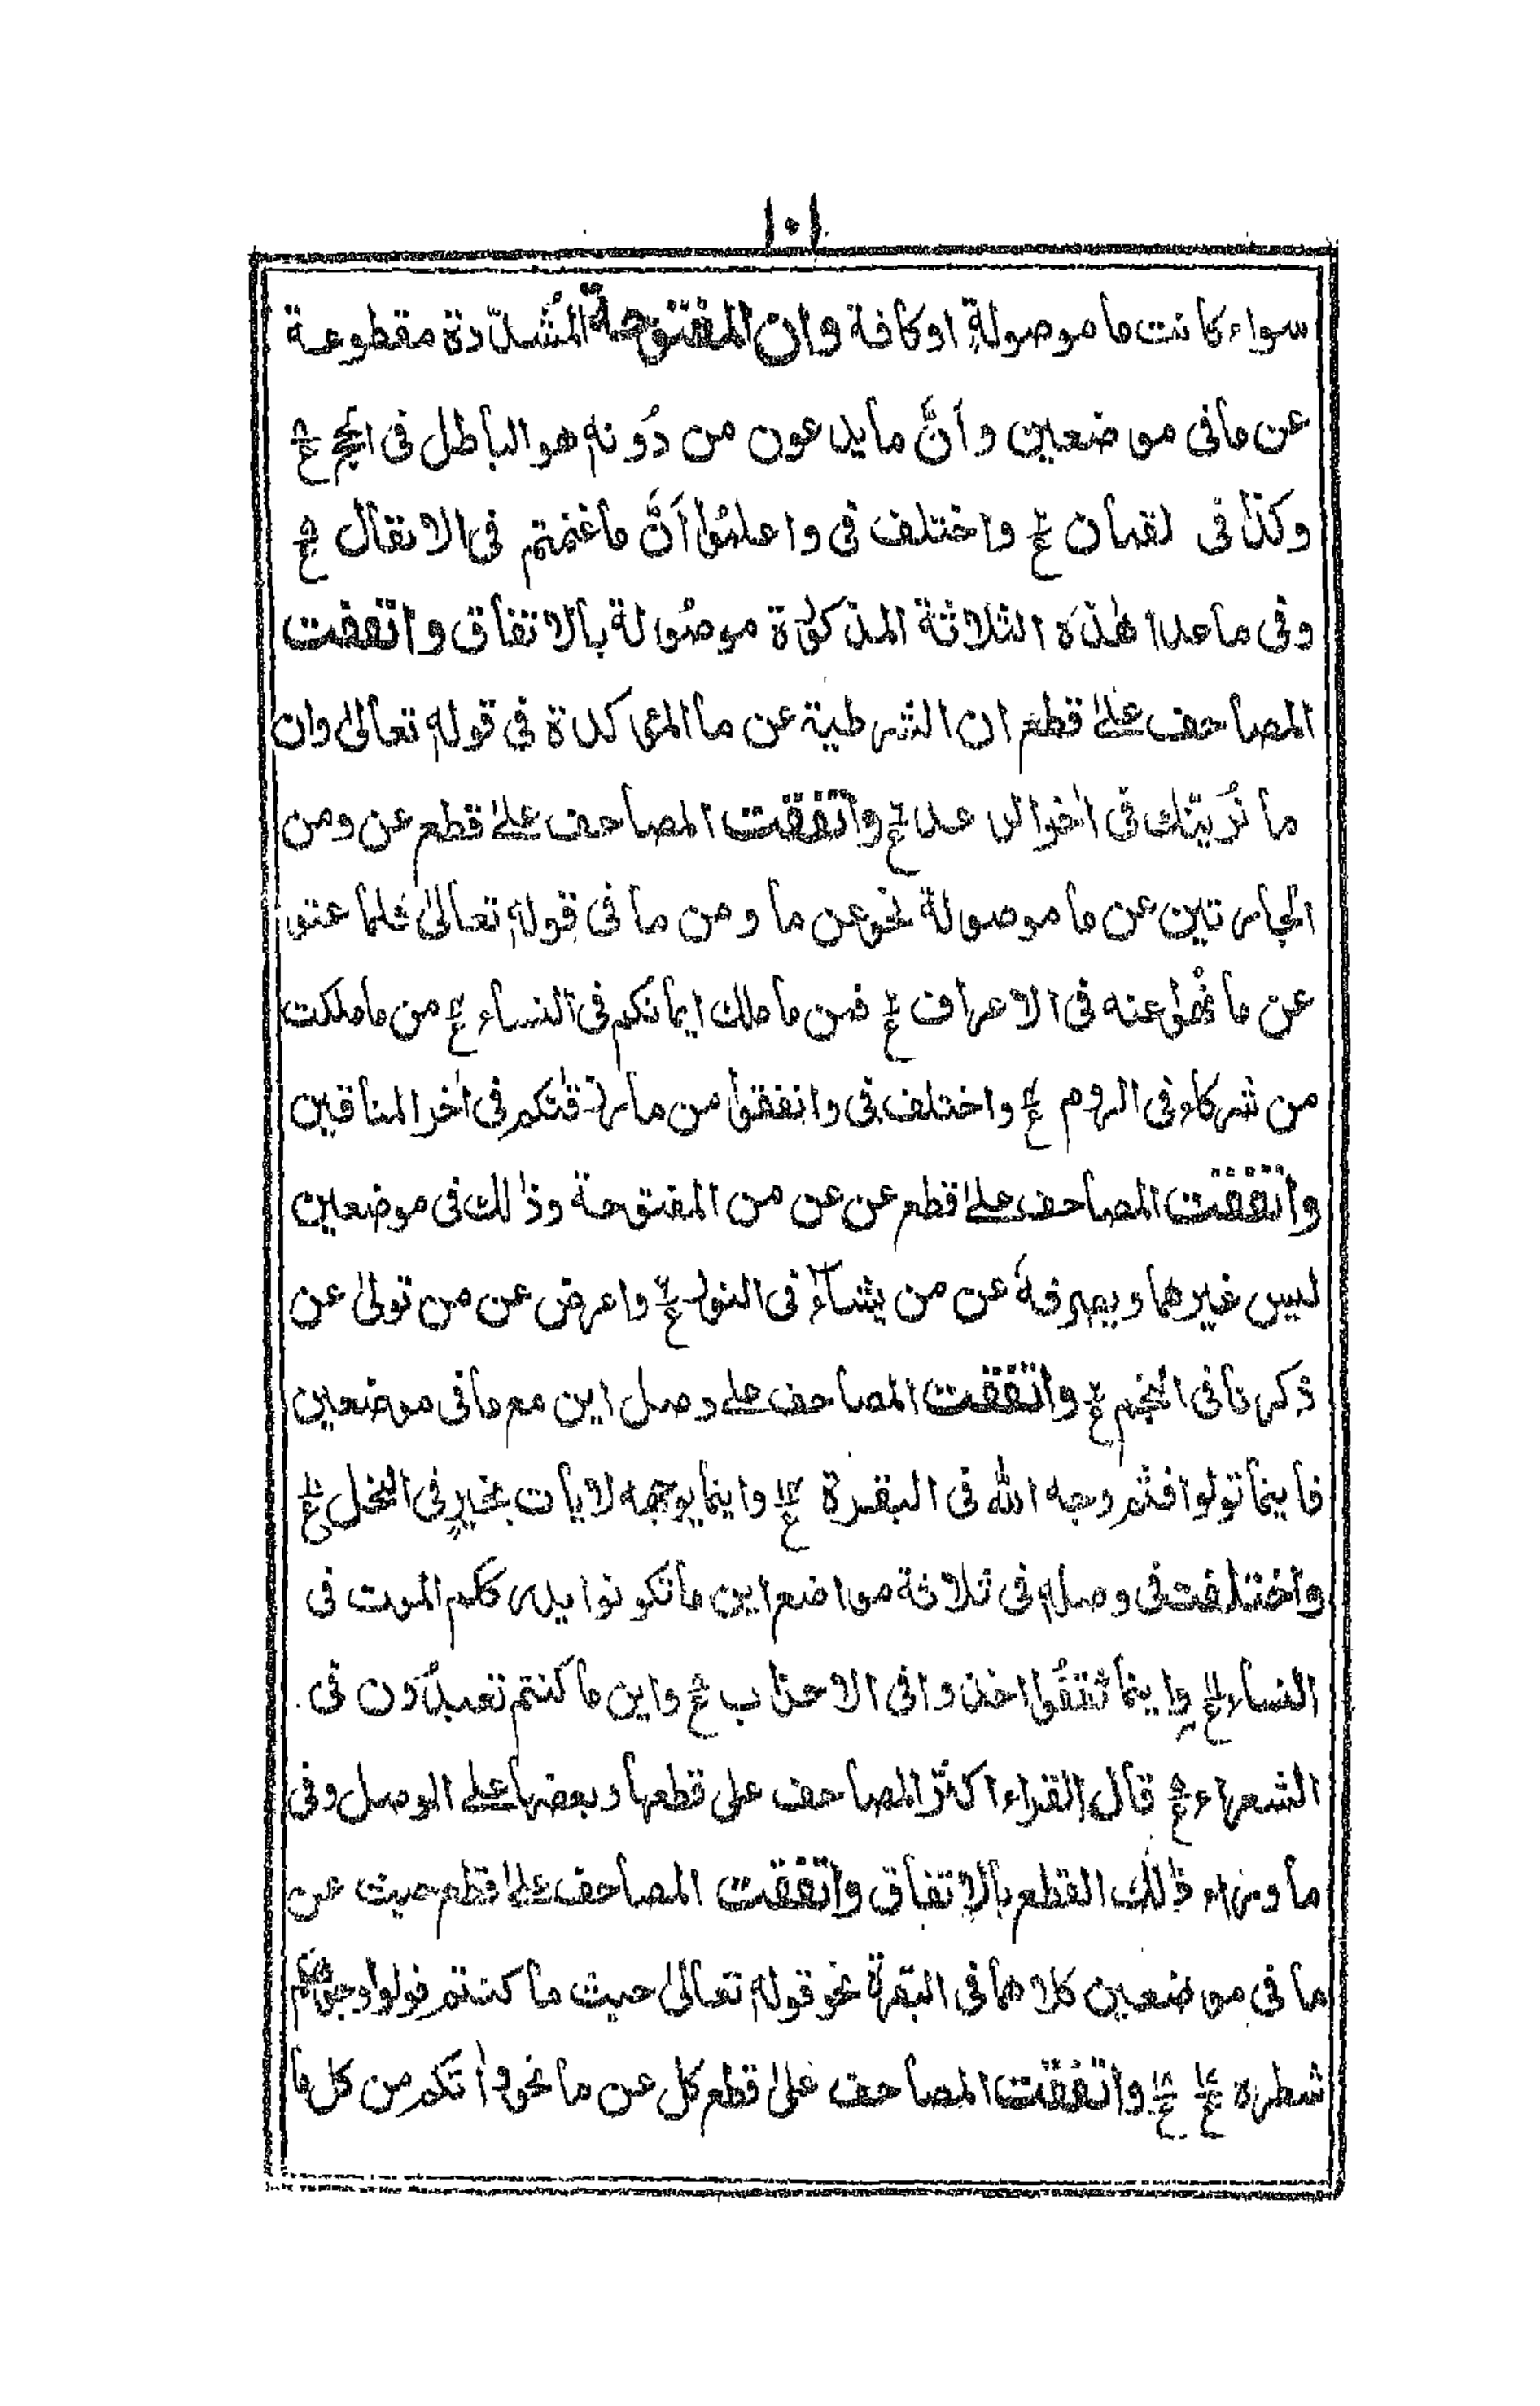 ١٠١
سواء كانت ما موصولة او كافة وان المفتوحة المشدّدة مقطوعة
عن ما فى موضعين وأنّ ما يدعون من دُونهٖ هو الباطل فى الحج
وكذا فى لقمان واختلف فى واعلمُوا اَنَّ ما غنمتم فى الانفال
وفى ما عدا هٰذه الثلاثة المذكورة موصُولة بالاتفاق واتّفقت
المصاحف علىٰ قطع ان الشرطية عن ما المؤكدة فى قولهٖ تعالىٰ وان
ما نُرينّك فى اٰخر الرعد واتّفقت المصاحف علىٰ قطع عن ومن
الجارتين عن ما موصولة نحو عن ما ومن ما فى قولهٖ تعالىٰ فلما عتو
عن ما نُهوا عنه فى الاعراف فمن ما ملك ايمانكم فى النساء من ما ملكت
من شركاء فى الروم واختلف فى وانفقوا من ما رزقنٰكم فى اٰخر المنافقين
واتّفقت المصاحف علىٰ قطع عن عن من المفتوحة وذٰلك فى موضعين
ليس غيرهما ويصرفهٗ عن من يشآء فى النور واعرض عن من تولىٰ عن
ذكرنا فى النجم واتّفقت المصاحف على وصل اين مع ما فى موضعين
فاينما تولوا فثم وجه الله فى البقرة واينما يوجهه لايات بخيرٍ فى النحل
واختلفت فى وصلهٖ فى ثلاثة مواضع اين ما تكونوا يدرككم الموت فى
النساء واينما ثقفُوا اخذوا فى الاحزاب واين ما كنتم تعبدُون فى
الشعراء قال القراء اكثر المصاحف على قطعها وبعضها على الوصل وفى
ما وراء ذٰلك القطع بالاتفاق واتّفقت المصاحف علىٰ قطع حيث عن
ما فى موضعين كلاهما فى البقرة نحو قولهٖ تعالىٰ حيث ما كنتم فولوا وجوهكم
شطره واتّفقت المصاحف علىٰ قطع كل عن ما نحو واٰتكم من كل ما